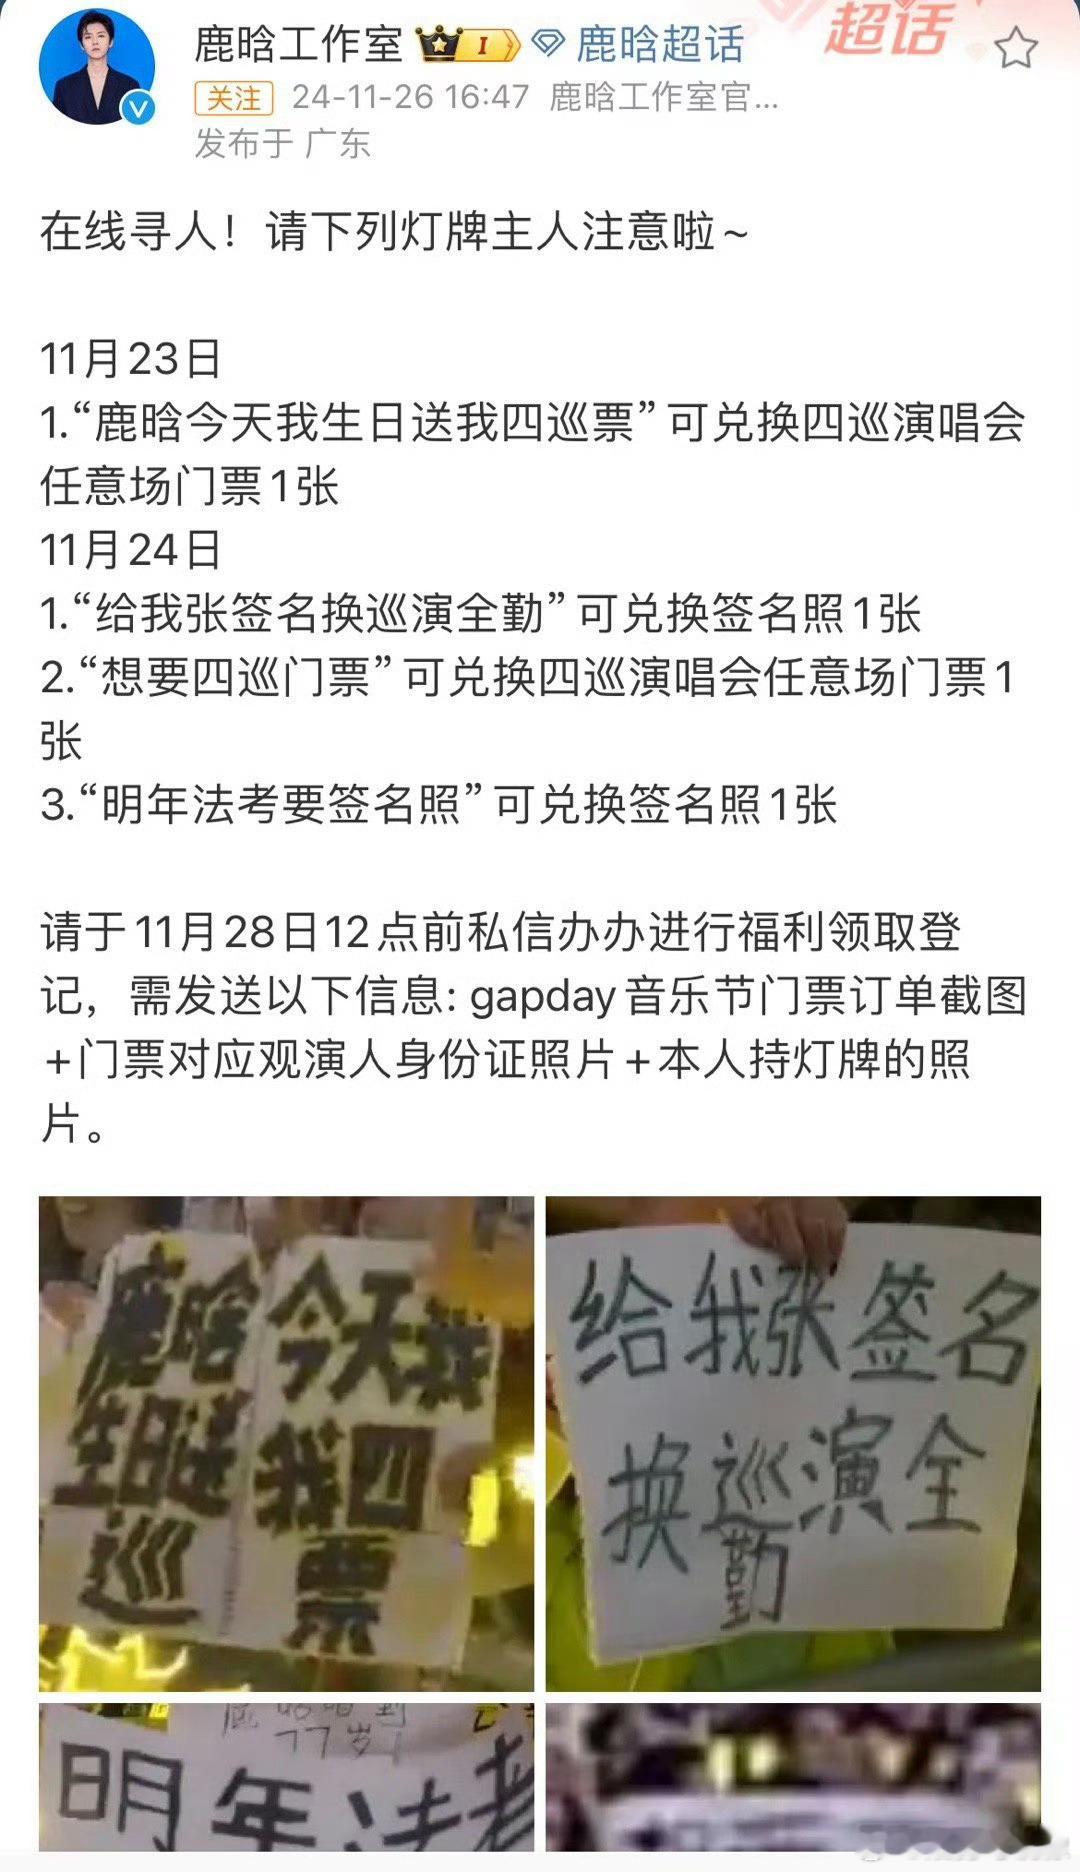 超话
鹿晗工作室 I 鹿晗超话
关注 24-11-26 16:47 鹿晗工作室官...
发布于 广东
在线寻人！请下列灯牌主人注意啦~
11月23日
1.“鹿晗今天我生日送我四巡票”可兑换四巡演唱会
任意场门票1张
11月24日
1.“给我张签名换巡演全勤”可兑换签名照1张
2.“想要四巡门票”可兑换四巡演唱会任意场门票1
张
3.“明年法考要签名照”可兑换签名照1张
请于11月28日12点前私信办办进行福利领取登
记，需发送以下信息: gapday音乐节门票订单截图
+门票对应观演人身份证照片+本人持灯牌的照
片。
鹿晗今天我
生日送我四
巡票
给我张签名
换巡演全
勤
77岁
明年法考